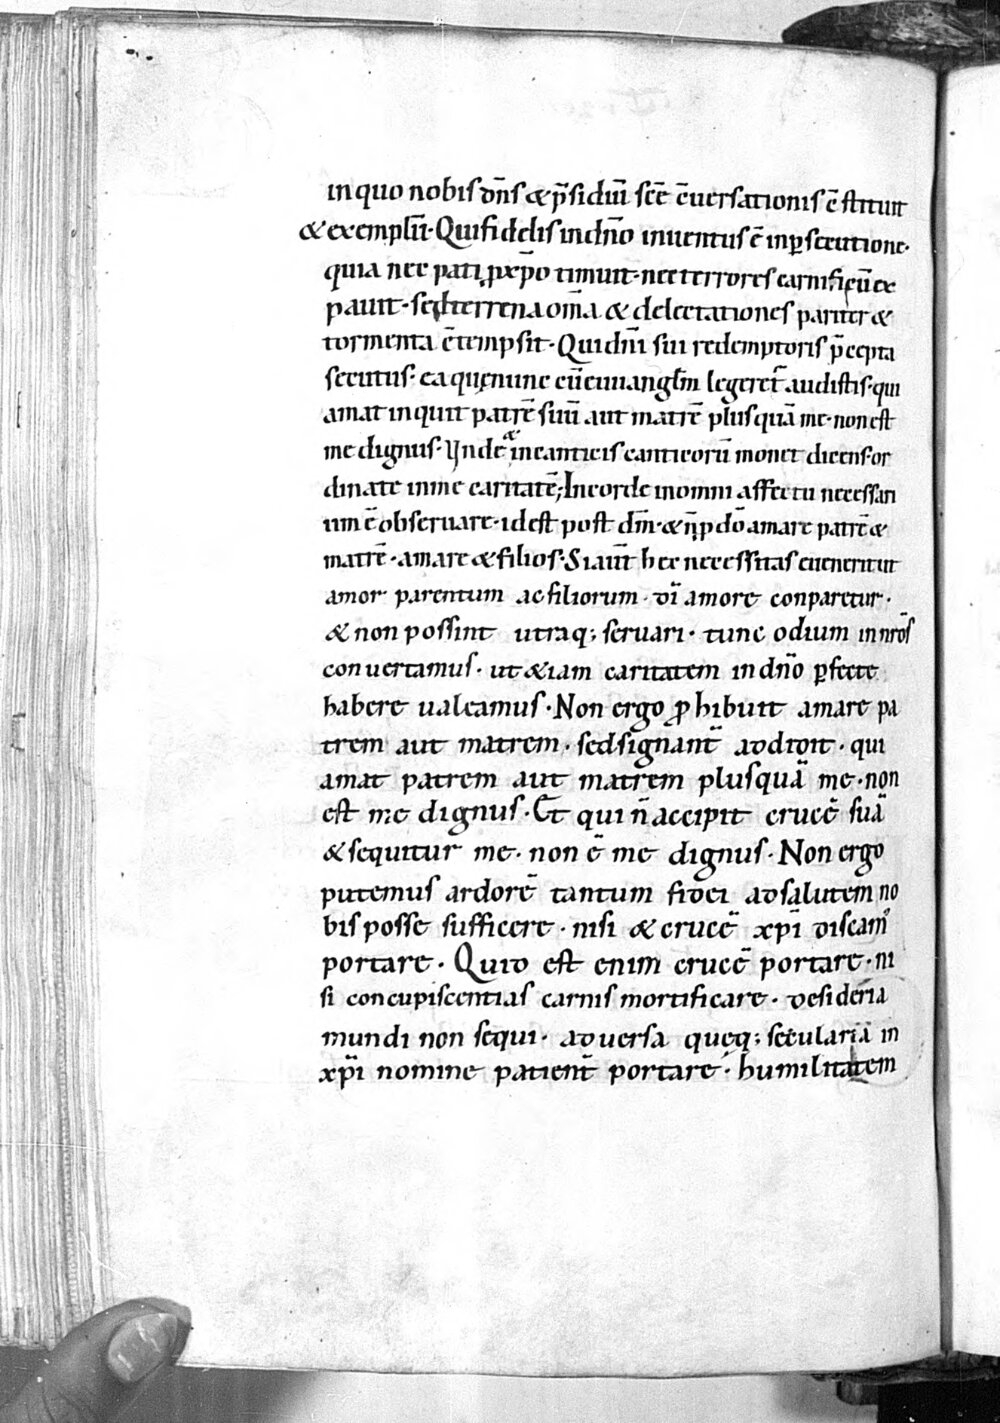 in quo nobis dñs & p̄sidiū scē c̄uersationis c̄stituit
& exemplū· Qui fidelis in dño inuentus ē in ꝑsecutione·
quia nec pati ꝓ xp̄o timuit· nec terrores carnificū ex
pauit· sed terrena om̄a & delectationes pariter &
tormenta c̄tempsit· Qui dñi sui redemptoris p̄cepta
secutus· ea quę nunc cū euuanglm̄ legeret̄ audistis· qui
amat inquit patrē suū aut matrē plusquā me· non est
me dignus· Unde & in canticis canticorū monet dicens· or
dinate in me caritatē; In corde in omni affectu necessari
um ē obseruare· id est post dm̄· & ñ p dō amare patrē &
matrē· amare & filios· Si aut̄ hec necessitas euenerit ut
amor parentum ac filiorum· dī amore conparetur·
& non possint utraq; seruari· tunc odium in nrōs
conuertamus· ut & iam caritatem in dño ꝑfecte
habere ualeamus· Non ergo ꝓhibuit amare pa
trem aut matrem· sed signant̄ addidit· qui
amat patrem aut matrem plusquā me· non
est me dignus· Et qui ñ accipit crucē suā
& sequitur me· non ē me dignus· Non ergo
putemus ardorē tantum fidei ad salutem no
bis posse sufficere· nisi & crucē xp̄i discam᾽
portare· Quid est enim crucē portare· ni
si concupiscentias carnis mortificare· desideria
mundi non sequi· aduersa quęq; secularia in
xp̄i nomine patient̄ portare· humilitatem